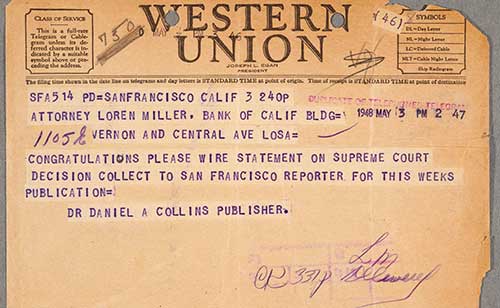 CLASS OF SERVICE
This is a full-rate
Telegram or Cable-
gram unless its de-
ferred character is in-
dicated by a suitable
symbol above or pre-
ceding the address.
750
WESTERN
UNION
JOSEPH L. EGAN
PRESIDENT
1461
SYMBOLS
DL=Day Letter
NL=Night Letter
LC=Deferred Cable
NLT=Cable Night Letter
Ship Radiogram
The filing time shown in the date line on telegrams and day letters is STANDARD TIME at point of origin. Time of receipt is STANDARD TIME at point of destination
SFA514 PD=SANFRANCISCO CALIF 3 240P
DUPLICATE OF TELEPHONED TELEGRAM
ATTORNEY LOREN MILLER, BANK OF CALIF BLDG=
1948 MAY 3 PM 2 47
1105 E VERNON AND CENTRAL AVE LOSA=
CONGRATULATIONS PLEASE WIRE STATEMENT ON SUPREME COURT
DECISION COLLECT TO SAN FRANCISCO REPORTER FOR THIS WEEKS
PUBLICATION=
DR DANIEL A COLLINS PUBLISHER.
LM
337p